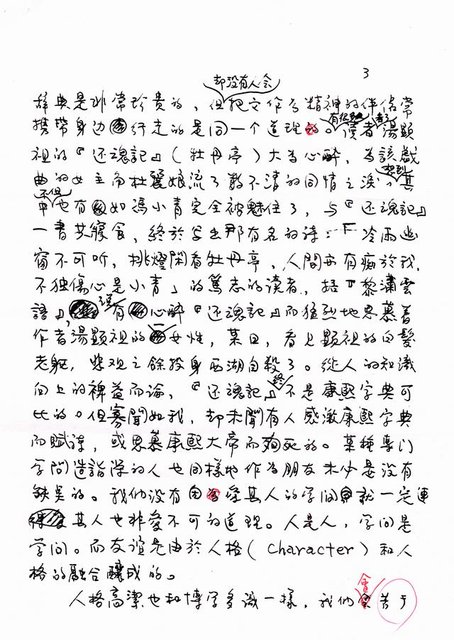 3
却没有人会
辞典是非常珍贵的，但把它作为精神的伴侣常
携带身边行走的是同一个道理的。读者汤显
祖的『还魂记』（牡丹亭）大为心醉，为该戏
曲的女主角杜麗娘流了数不清的同情之泪。
中也有如冯小青完全被魅住了，与『还魂记』
一書共寝食，終於写出那有名的诗：「冷雨幽
窗不可听，挑燈閑看牡丹亭，人間亦有痴於我，
不独傷心是小青」的篤志的读者，據『黎瀟雲
語』有心醉『还魂记』而猛烈地思慕着
作者湯顯祖的女性，某日，看見顯祖的白髮
老躯，悲观之餘投身西湖自殺了。從人的知識
向上的裨益而論，『还魂记』不是康熙字典可
比的。但寡聞如我，却未聞有人感激康熙字典
而賦詩，或思慕康熙大帝而殉死的。某種專门
学問造詣深的人也同樣地作为朋友未必是没有
缺点的。我們没有因為某人的学問就一定連
某人也非愛不可的道理。人是人，学问是
学问。而友谊是由於人格（character）和人
格的融合釀成的。
人格高潔也和博学多識一樣，我們會苦于